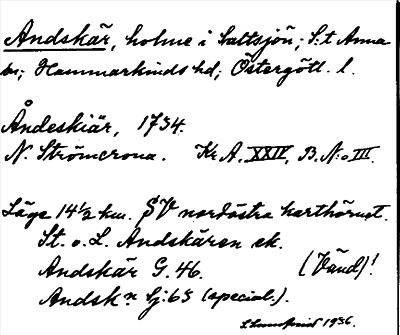 Andskär, holme i Saltsjön; S:t Anna
sn; Hammarkinds hd; Östergötl. l.
Åndeskiär, 1734.
N. Strömcrona. Kr A. XXIV, B. N:o III.
Läge 14½ km. SV nordöstra karthörnet.
St. o. L. Andskären ek.
Andskär G. 46. (Vänd)!
Andsk.n Sj: 65 (special.).
1936.